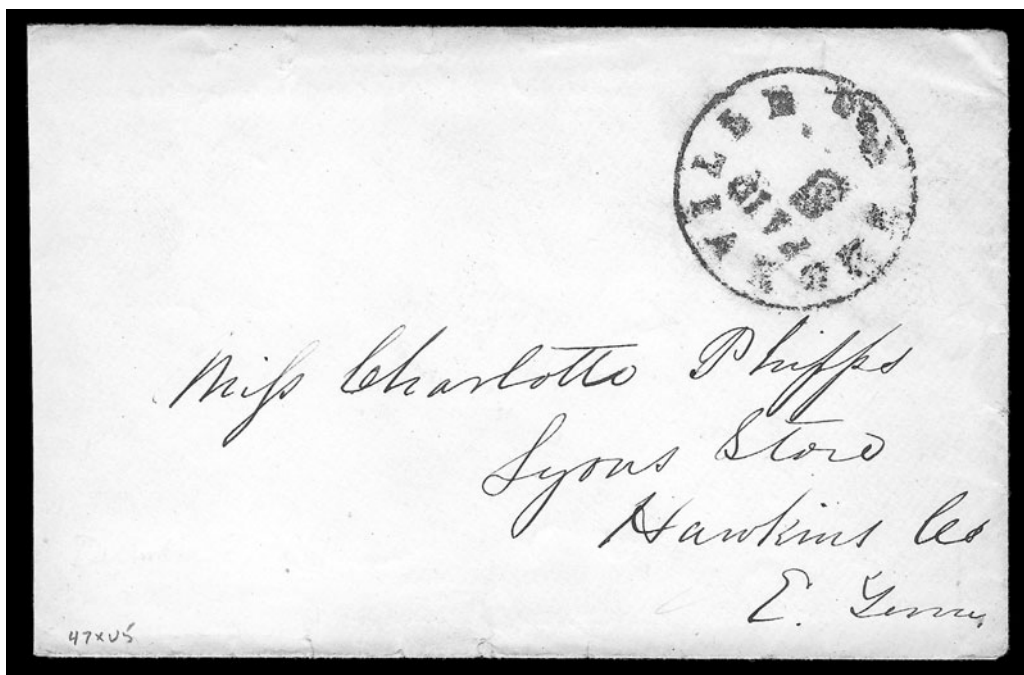 KNOXVILLE
PAID
5
Miss Charlotte Phipps
Lyons Store
Hawkins Co
E. Tenn,
47XU5